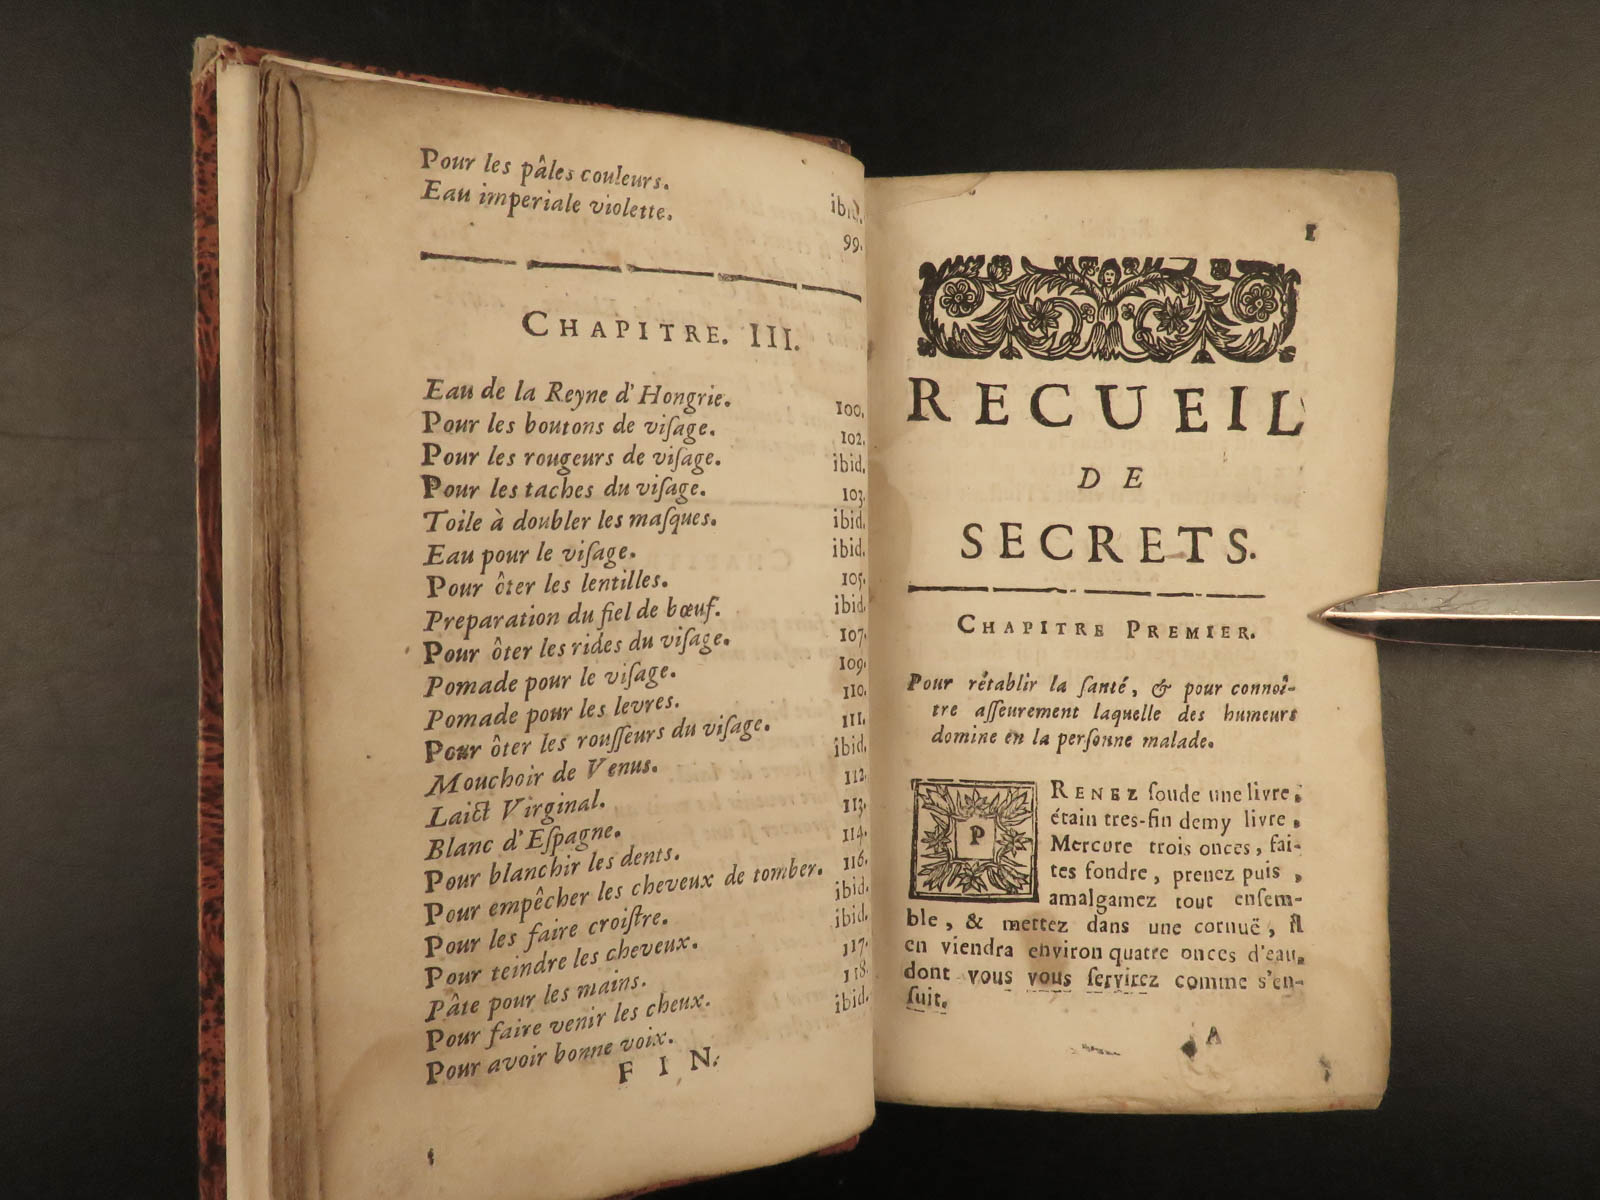 Pour les pâles couleurs. ibid.
Eau imperiale violette. 99.
CHAPITRE. III.
Eau de la Reyne d'Hongrie. 100.
Pour les boutons de viſage. 102.
Pour les rougeurs de viſage. ibid.
Pour les taches du viſage. 103.
Toile à doubler les maſques. ibid.
Eau pour le viſage. ibid.
Pour ôter les lentilles. 105.
Preparation du fiel de bœuf. ibid.
Pour ôter les rides du viſage. 107.
Pomade pour le viſage. 109.
Pomade pour les levres. 110.
Pour ôter les rouſſeurs du viſage. 111.
Mouchoir de Venus. ibid.
Laict Virginal. 112.
Blanc d'Eſpagne. 113.
Pour blanchir les dents. 114.
Pour empêcher les cheveux de tomber. 116.
Pour les faire croiſtre. ibid.
Pour teindre les cheveux. ibid.
Pâte pour les mains. 117.
Pour faire venir les cheux. 118.
Pour avoir bonne voix. ibid.
FIN.
1
RECUEIL
DE
SECRETS.
CHAPITRE PREMIER.
Pour rétablir la ſanté, & pour connoî-
tre aſſeurement laquelle des humeurs
domine en la perſonne malade.
PRENEZ ſoude une livre,
étain tres-fin demy livre,
Mercure trois onces, fai-
tes fondre, prenez puis,
amalgamez tout enſem-
ble, & mettez dans une cornuë, il
en viendra environ quatre onces d'eau,
dont vous vous ſervirez comme s'en-
ſuit.
A